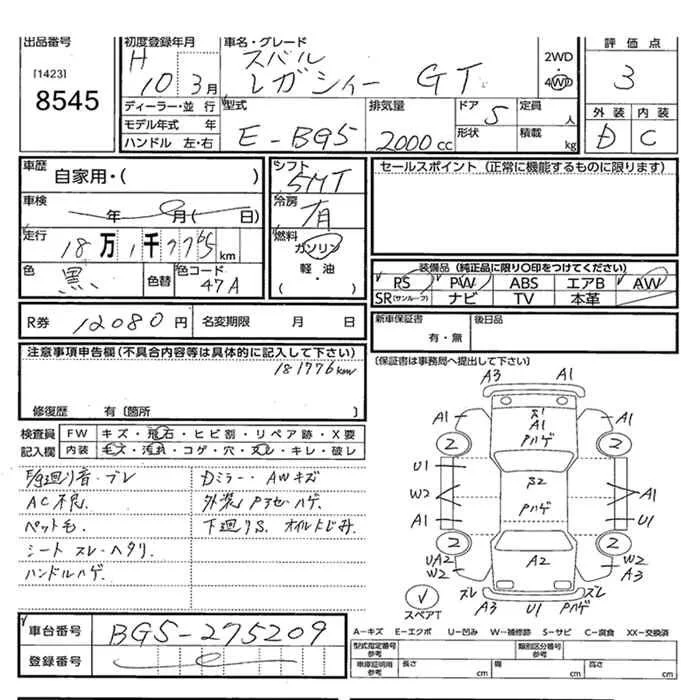 出品番号
[1423]
8545
初度登録年月
H 10 3月
車名・グレード
スバル
レガシィー GT
2WD
・
4WD
評価点
3
外装 内装
D C
ディーラー・並行
モデル年式 年
ハンドル 左・右
型式
E-BG5
排気量
2000cc
ドア 5
形状
定員 人
積載 kg
車歴
自家用・( )
車検 年 月( 日)
走行 18万1千775km
色 黒
色替
色コード 47A
シフト
5MT
冷房
有
燃料
ガソリン
軽・油
( )
セールスポイント(正常に機能するものに限ります)
装備品(純正品に限り〇印をつけてください)
RS PW ABS エアB AW
SR(サンルーフ) ナビ TV 本革
R券 12080円 名変期限 月 日
新車保証書
有・無
後日品
注意事項申告欄(不具合内容等は具体的に記入して下さい)
181776km
修復歴 有〔箇所 〕
〔保証書は事務局へ提出して下さい〕
検査員 FW キズ・飛石・ヒビ割・リペア跡・X要
記入欄 内装 毛ズ・汚れ・コゲ・穴・スレ・キレ・破レ
F/9廻り音・ブレ
AC不良.
ペット毛.
シート スレ・ヘタリ.
ハンドルハゲ.
Dミラー・AWキズ
外装Pアセ・ハゲ.
下廻りS. オイルにじみ.
A3 A1
A1 A1 Pハゲ A1
2 2
U1
B2
W2 Pハゲ A1
A1 U1
2 2
UA2 W2 A2 W2 A3
スレ スレ
A3 U1 Pハゲ
スペアT
車台番号 BG5-275209
登録番号
A-キズ E-エクボ U-凹み W-補修跡 S-サビ C-腐食 XX-交換済
型式指定番号
参考
類別区分番号
参考
車庫証明用
参考
長さ cm
幅 cm
高さ cm